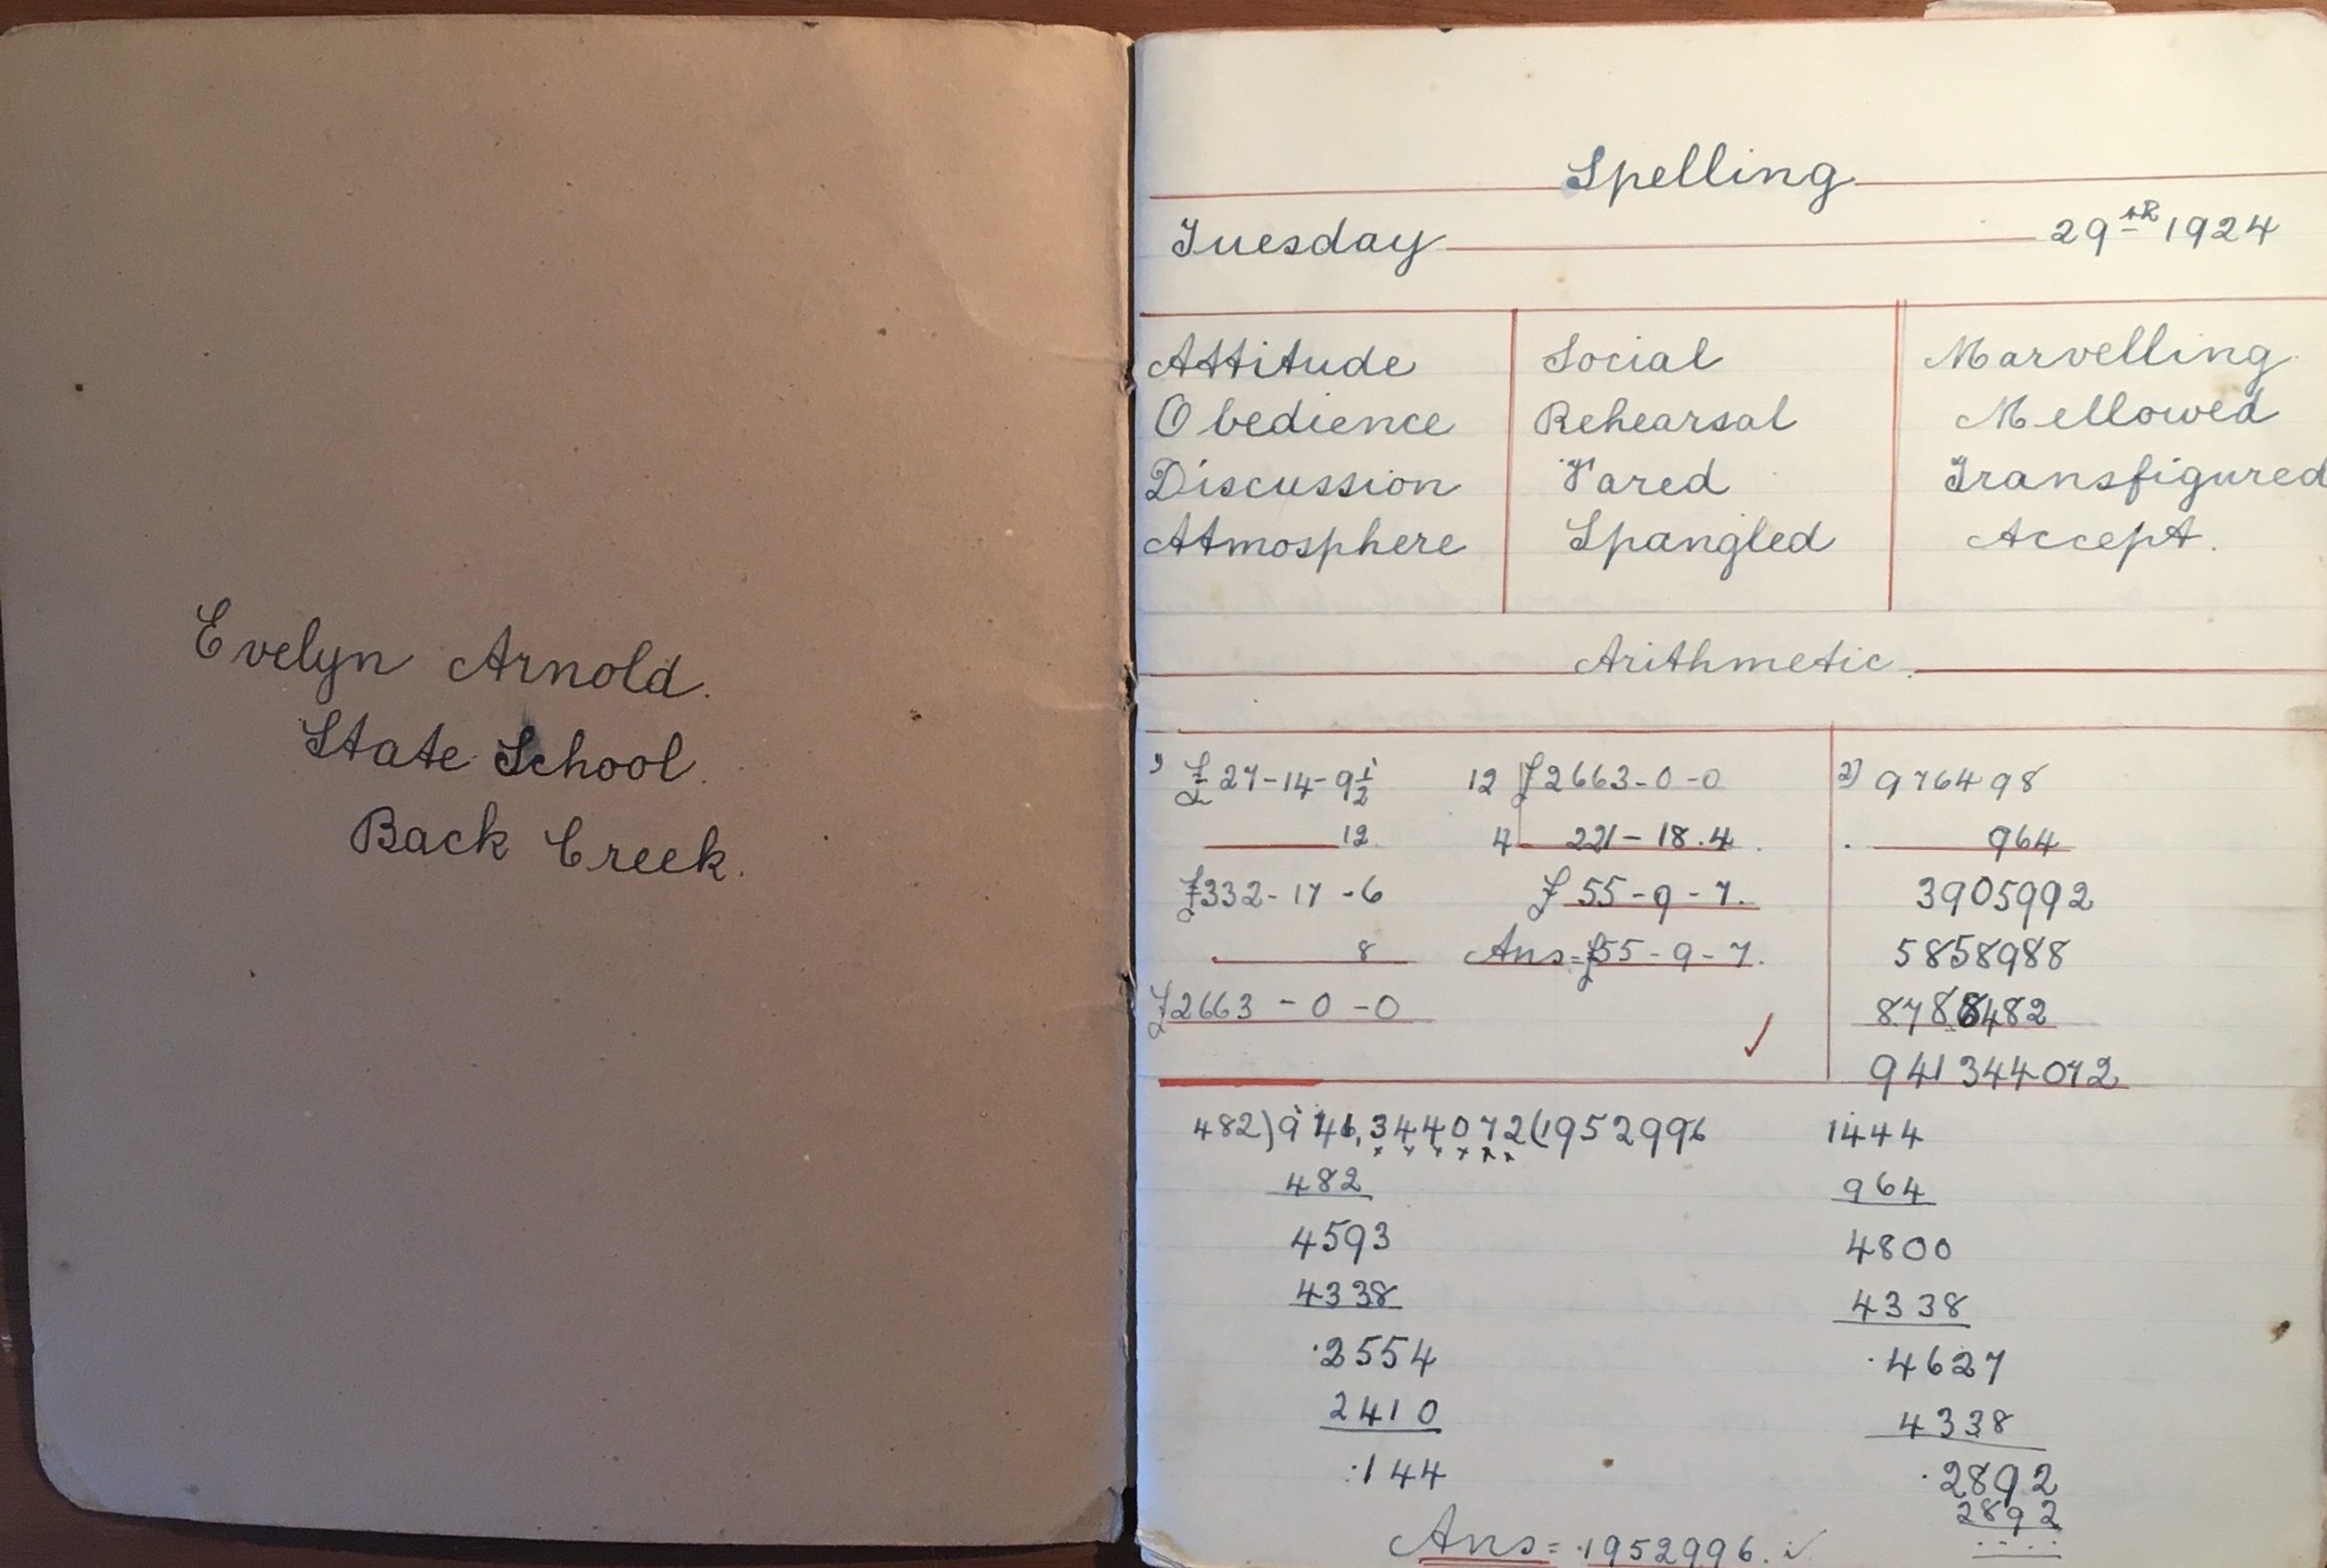 Evelyn Arnold.
State School.
Back Creek.
Spelling
Tuesday 29th 1924
Attitude Social Marvelling
Obedience Rehearsal Mellowed
Discussion Pared Transfigured
Atmosphere Spangled Accept.
Arithmetic.
1) £27-14-9½ 12 £2663-0-0 2) 976498
12 4 221-18.4. 964
£332-17-6 £55-9-7. 3905992
8 Ans=£55-9-7. 5858988
£2663-0-0 8788482
941344072
482)941,344072(1952996 1444
482 964
4593 4800
4338 4338
2554 4627
2410 4338
144 2892
2892
Ans = 1952996.